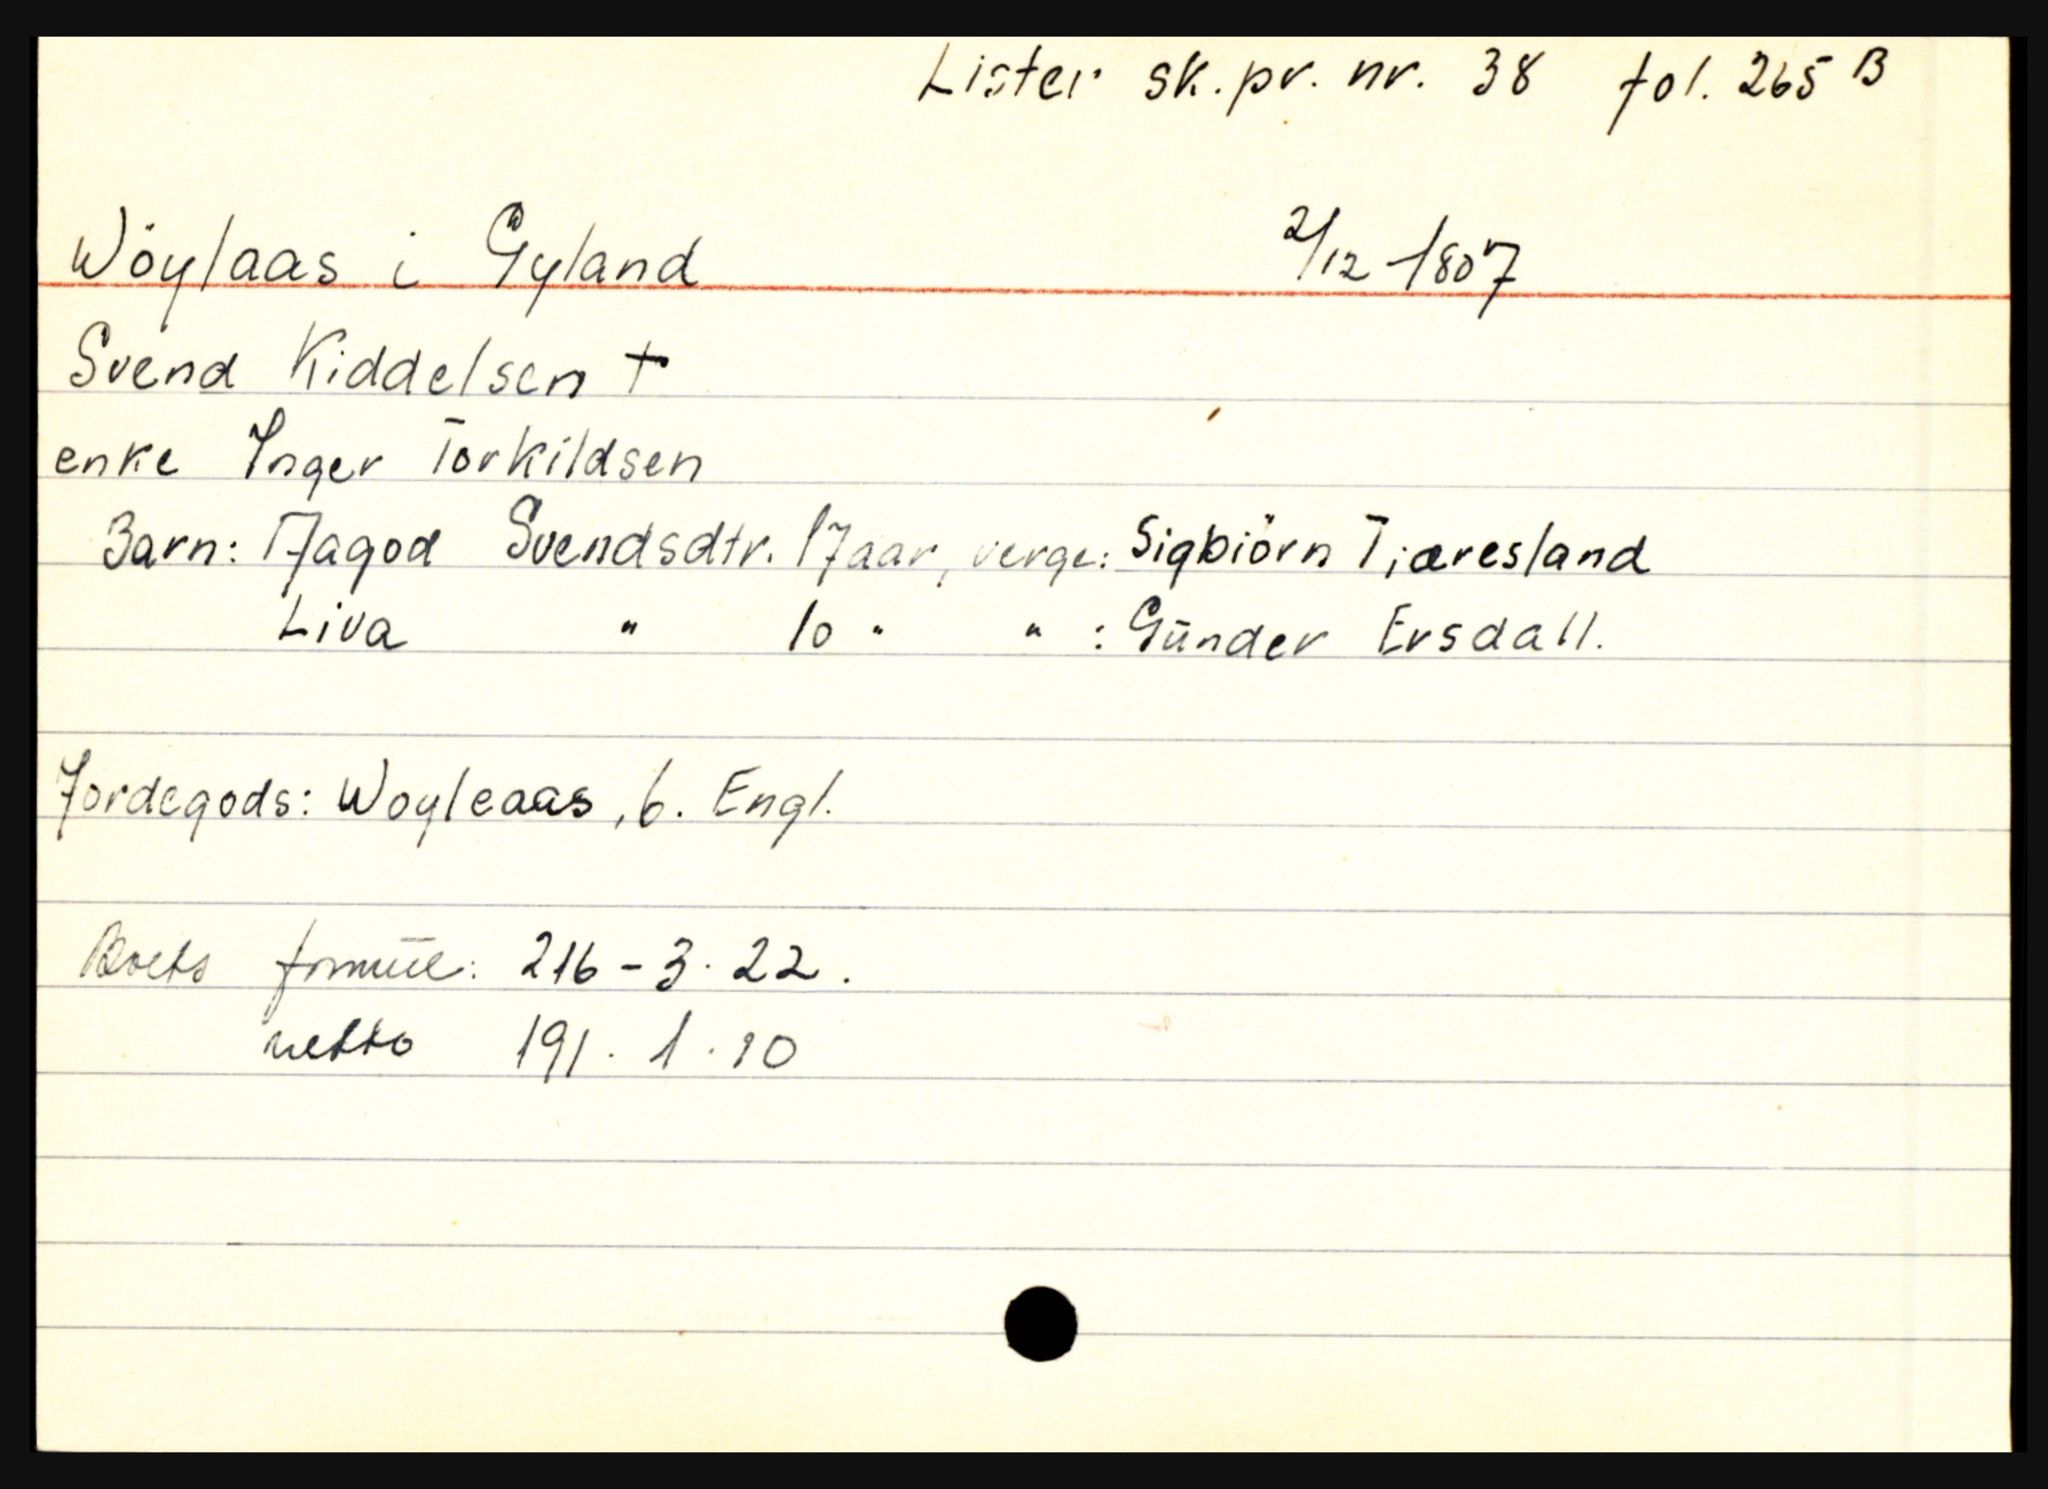 Lister sk.pr. nr. 38 fol. 265 B
Wöylaas i Gyland 2/12-1807
Svend Kiddelsen †
enke Inger Torkildsen
Barn: Aagod Svendsdtr. 17 aar, verge: Sigbiörn Tiæresland
Liva " 10 " " : Gŭnder Ersdall.
Jordegods: Woyleaas, 6. Engl.
Boets formue: 216 - 3 . 22.
netto 191 . 1 . 10